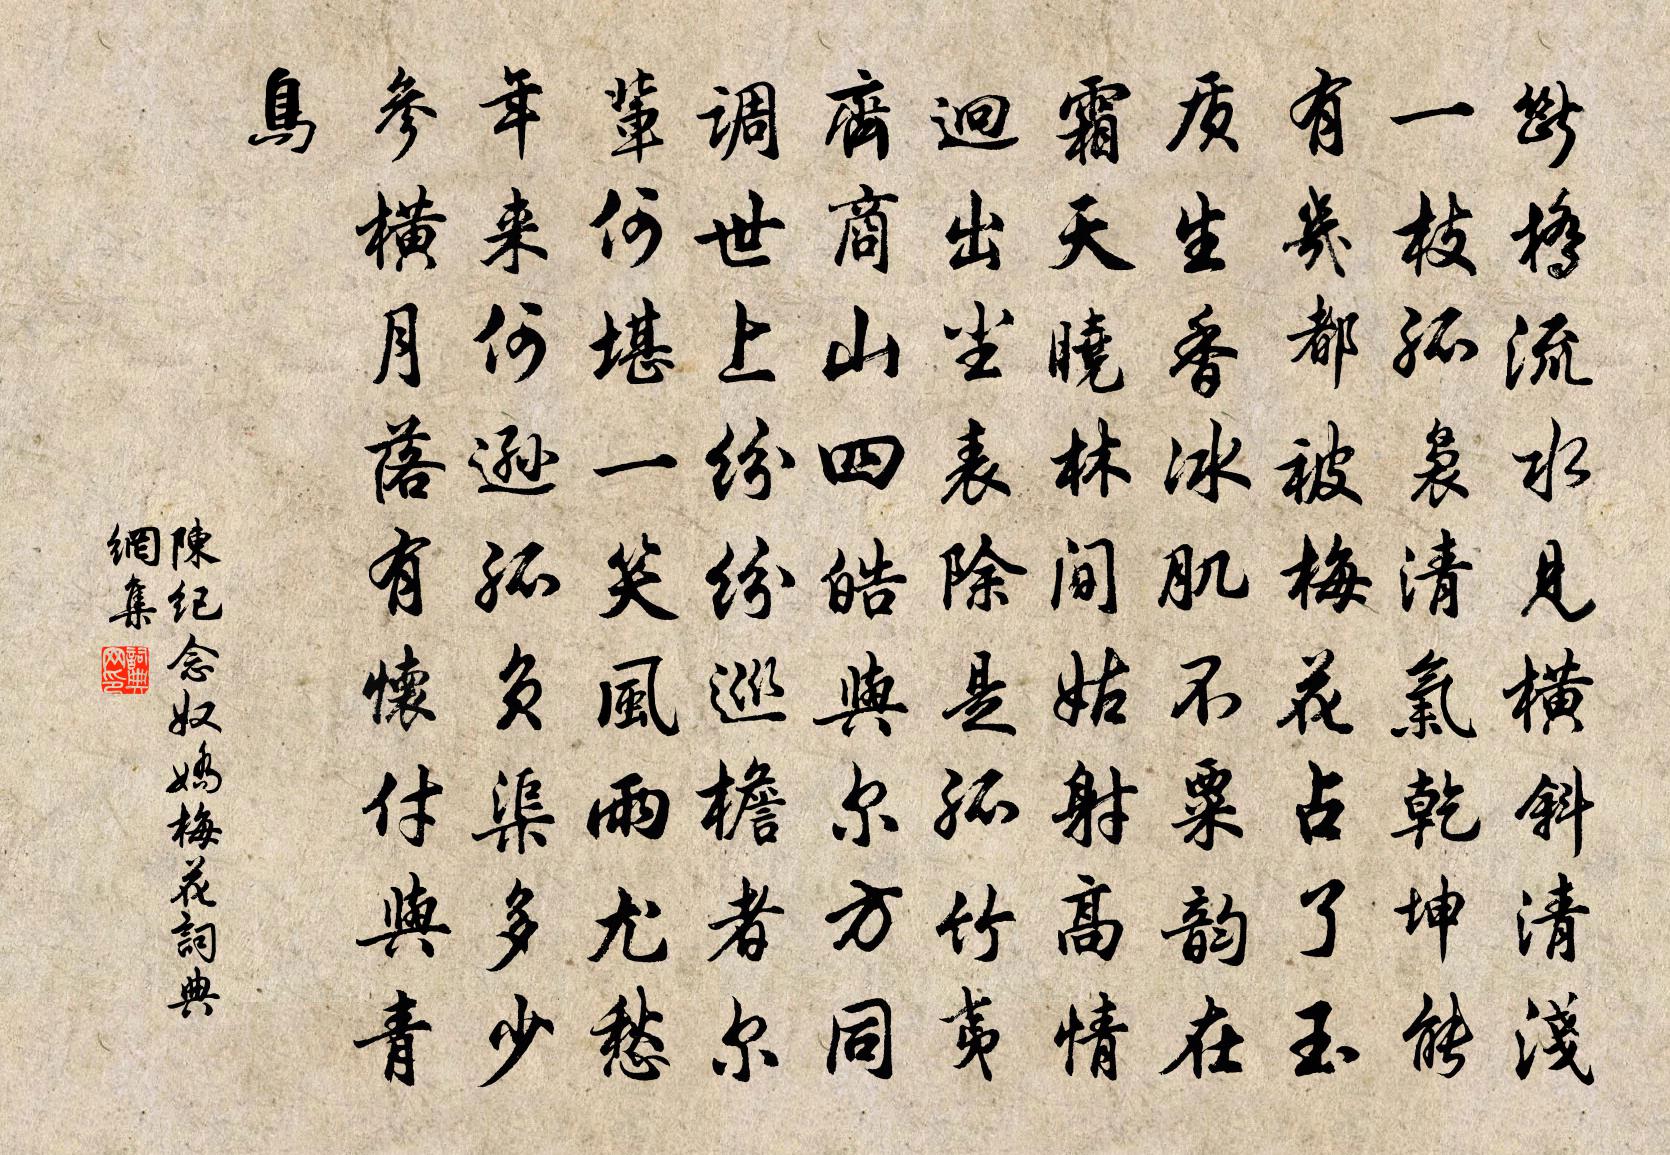 斷橋流水見橫斜清淺
一枝孤裊清氣乾坤能
有幾都被梅花占了玉
质生香冰肌不粟韵在
霜天曉林间姑射高情
迥出尘表除是孤竹夷
齊商山四皓與尔方同
调世上纷纷巡檐者尔
輩何堪一笑風雨尤愁
年来何遜孤负渠多少
參橫月落有懷付與青
鳥
陳纪念奴嬌梅花詞典
網集
詞典
网